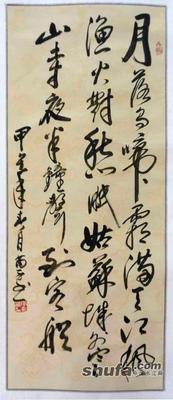 月落乌啼霜满天江枫
渔火对愁眠姑苏城外
山寺夜半钟声到客船
甲
shufa